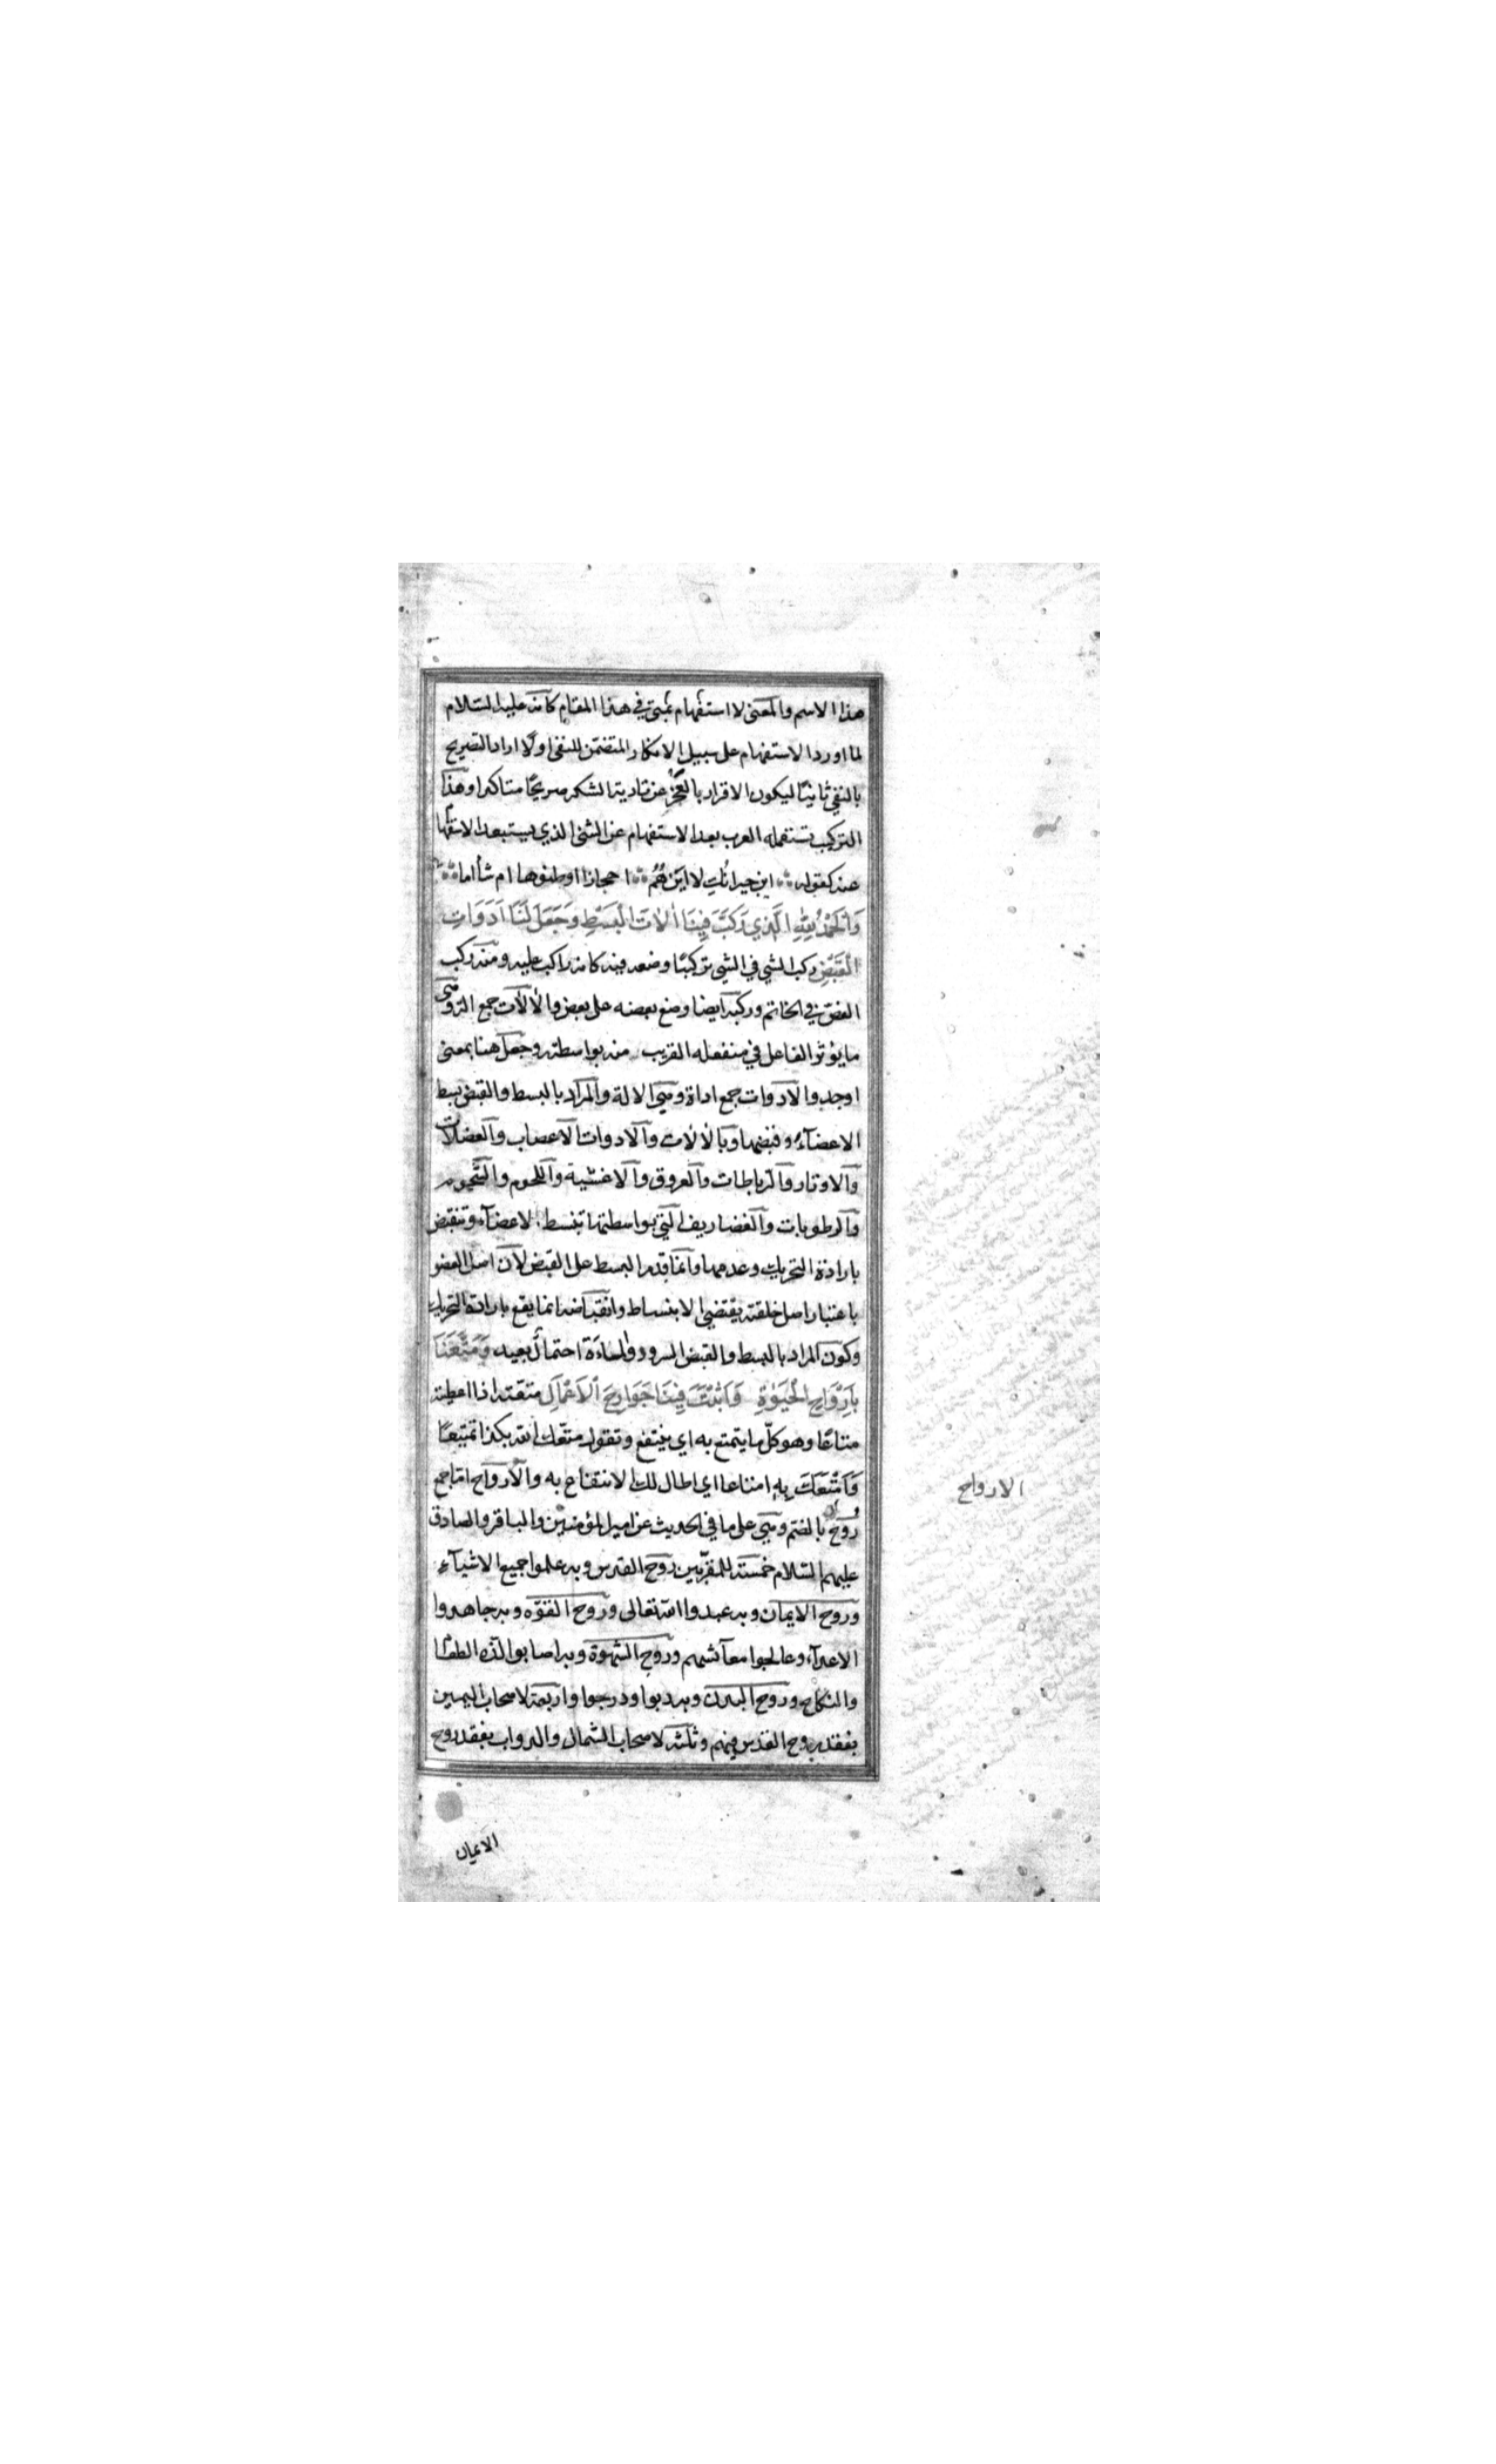 هذا الاسم والمعنى لا استفهام متى في هذا المقام كانه عليه السلام
لما اورد الاستفهام على سبيل الانكار المتضمن للنفى اولا اراد التصريح
بالنفي ثانيا ليكون الاقرار بالعجز عن تادية الشكر صريحا متاكدا وهذا
التركيب تستعمله العرب بعد الاستفهام عن الشئ الذي يستبعد الاستفهام
عنه كقوله اين جيرانك لا اين هم احجازا اوطنوها ام شأاما
وَالْحَمْدُ لِلّٰهِ الَّذِي رَكَّبَ فِينَا اٰلاتَ الْبَسْطِ وَجَعَلَ لَنَا اَدَوَاتِ
الْقَبْضِ ركب الشي في الشي تركيبا وضعه فيه كانه راكب عليه ومنه ركب
الفص في الخاتم وركبه ايضا وضع بعضه على بعض والآلات جمع الة وهي
ما يؤثر الفاعل في منفعله القريب منه بواسطته وجعل هنا بمعنى
اوجد والادوات جمع اداة وهي الالة والمراد بالبسط والقبض بسط
الاعضآء وقبضها وبالآلات والادوات الاعصاب والعضلات
والاوتار والرباطات والعروق والاغشية واللحوم والشحوم
والرطوبات والغضاريف التي بواسطتها تنبسط الاعضآء وتنقبض
بارادة التحريك وعدمها وانما قدم البسط على القبض لان اصل العضو
باعتبار اصل خلقته يقتضي الانبساط وانقباضه انما يقع بارادة التحريك
وكون المراد بالبسط والقبض السرور والمساءة احتمال بعيد وَمَتَّعَنَا
بِاَرْوَاحِ الْحَيٰوةِ وَاَثْبَتَ فِينَا جَوَارِحَ الْاَعْمَالِ متعته اذا اعطيته
متاعا وهو كل ما يتمتع به اي ينتفع وتقول متعك الله بكذا تمتيعا
وَاَمْتَعَكَ بِهِ امتاعا اي اطال لك الانتفاع به والارواح اما جمع
روح بالضم وهي على ما في الحديث عن امير المؤمنين والباقر والصادق
عليهم السلام خمسة للمقربين روح القدس وبه علموا جميع الاشيآء
وروح الايمان وبه عبدوا الله تعالى وروح القوه وبه جاهدوا
الاعدآء وعالجوا معآشهم وروح الشهوة وبه اصابوا لذة الطعام
والنكاح وروح البدن وبه دبوا ودرجوا واربعة لاصحاب اليمين
بفقد روح القدس منهم وثلثة لاصحاب الشمال والدواب بفقد روح
الارواح
الايمان